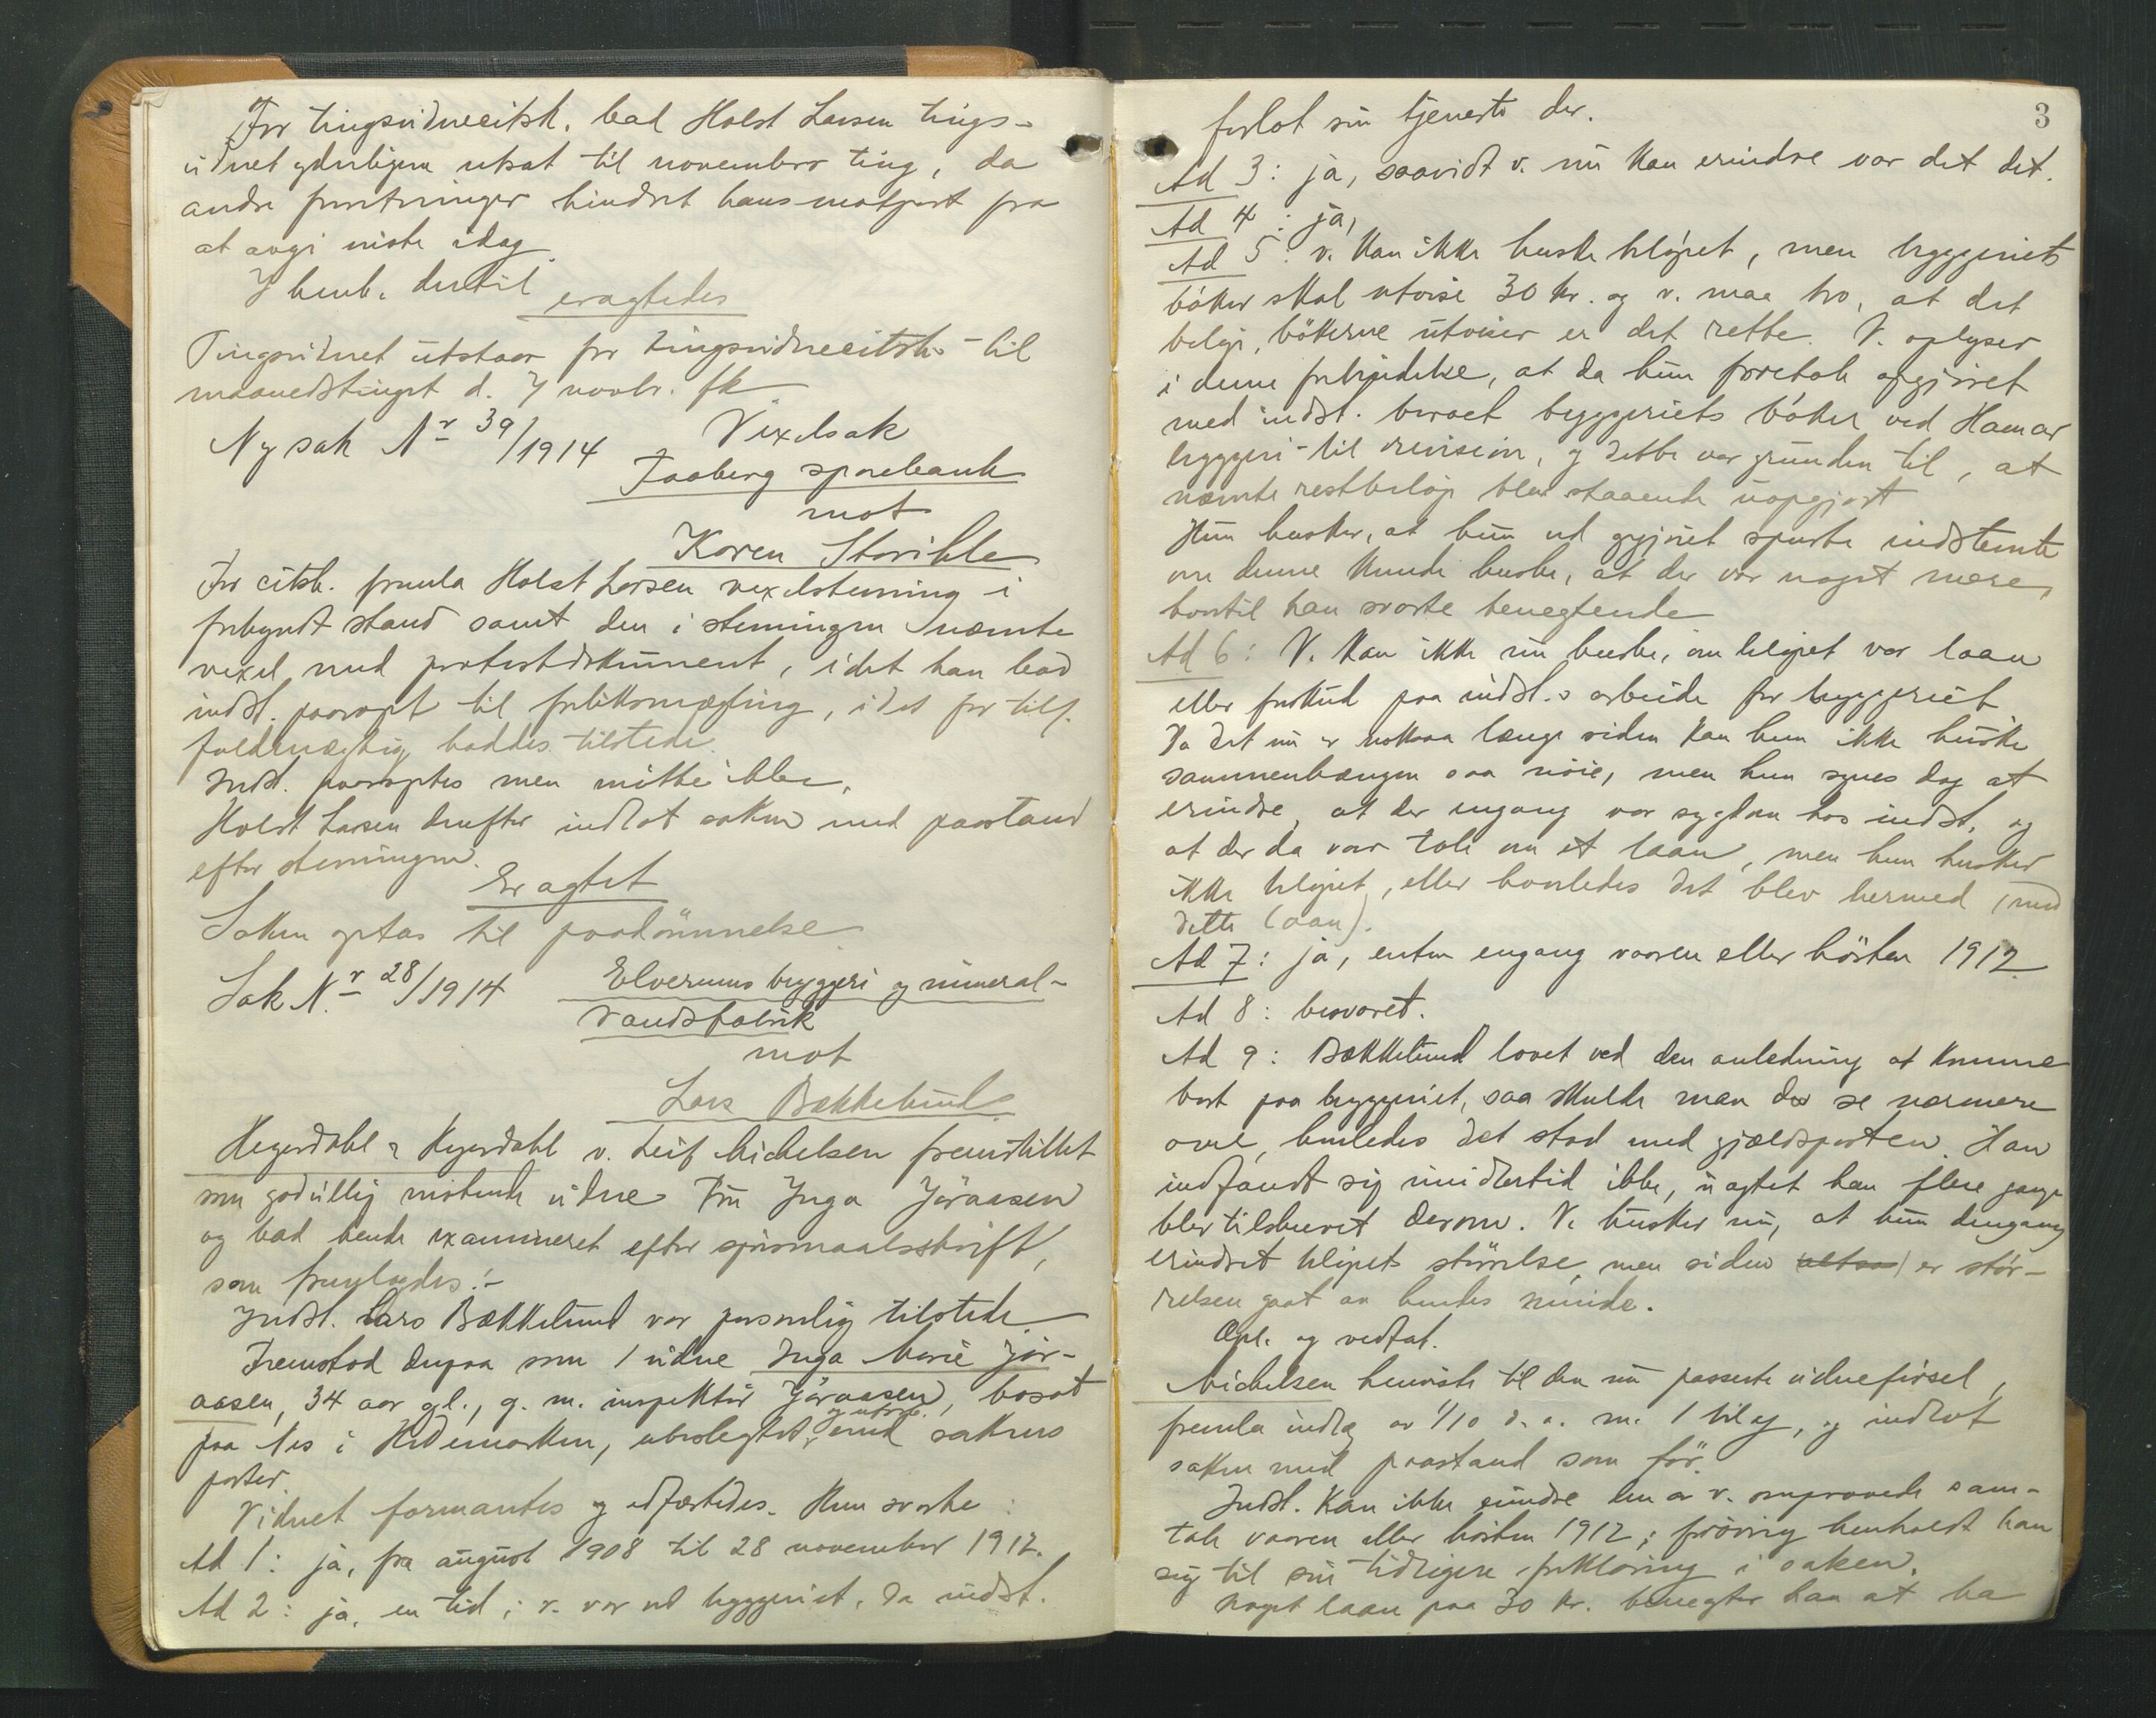 For tingsvidnecitsk. bad Holst Larsen tings-
vidnet yderligere utsat til novembers ting, da
andre forretninger hindret hans motpart fra
at avgi møte idag.
I henh. dertil eragtedes
Tingsvidnet utstaar for tingsvidnecitsk. til
maanedstinget d. 7 novbr. fk
Ny sak Nr 39/1914 Vexelsak
Faaberg sparebank
mot
Karen Storihle
For citsk. fremla Holst Larsen vexelstevning i
forkyndt stand samt den i stevningen nævnte
vexel med protestdokument, idet han bad
indst. paaropt til forliksmægling, idet for tilf.
fuldmægtig haddes tilstede.
Indst. paaroptes men møtte ikke.
Holst Larsen derefter indlot saken med paastand
efter stevningen.
Eragtet
Saken optas til paadömmelse.
Sak Nr 28/1914 Elverums bryggeri og mineral-
vandsfabrik
mot
Lars Bækkelund
Heyerdahl & Heyerdahl v. Leif Michelsen fremstillet
som godvillig møtende vidne Fru Inga Jöraasen
og bad hende examineret efter spörsmaalsskrift,
som fremlagdes:-
Indst. Lars Bækkelund var personlig tilstede.
Fremstod derpaa som 1 vidne Inga Marie Jör-
aasen, 34 aar gl., g. m. inspektör Jöraasen, bosat
paa Nes i Hedemarken, ubeslegtet og utvse. med sakens
parter.
Vidnet formantes og edfæstedes. Hun svarte:
Ad 1: ja, fra august 1908 til 28 november 1912.
Ad 2: ja, en tid; v. var ved bryggeriet, da indst.
3
forlot sin tjeneste der.
Ad 3: ja, saavidt v. nu kan erindre var det det.
Ad 4: ja,
Ad 5: v. kan ikke huske beløpet, men bryggeriets
böker skal utvise 30 kr. og v. maa tro, at det
beløp, bökerne utviser er det rette. V. oplyser
i denne forbindelse, at da hun foretok opgjöret
med indst. beroet bryggeriets böker ved Hamar
bryggeri til revision, og dette var grunden til, at
nævnte restbeløp blev staaende uopgjort
Hun husker, at hun ved opgjöret spurte indstevnte
om denne kunde huske, at der var noget mere,
hvortil han svarte benegtende
Ad 6: V. kan ikke nu huske, om beløpet var laan
eller forskud paa indst.s arbeide for bryggeriet
Da det nu er noksaa længe siden kan hun ikke huske
sammenhængen saa nöie, men hun synes dog at
erindre, at der engang var sygdom hos indst. og
at der da var tale om et laan, men hun husker
ikke beløpet, eller hvorledes det blev hermed (med
dette laan).
Ad 7: ja, enten engang vaaren eller hösten 1912
Ad 8: besvaret.
Ad 9: Bækkelund lovet ved den anledning at komme
bort paa bryggeriet, saa skulde man der se nærmere
over, hvorledes det stod med gjældsposten. Han
indfandt sig imidlertid ikke, uagtet han flere gange
blev tilskrevet derom. V. husker nu, at hun dengang
erindret beløpets störrelse, men siden altsaa er stör-
relsen gaat av hendes minde.
Opl. og vedtat.
Michelsen henviste til den nu passerte vidneförsel,
fremla indlæg av 1/10 d. a. m. 1 bilag, og indlot
saken med paastand som för.
Indst. kan ikke erindre den av v. omprovede sam-
tale vaaren eller hösten 1912; forövrig henholdt han
sig til sin tidligere forklaring i saken.
Noget laan paa 30 kr. benegter han at ha